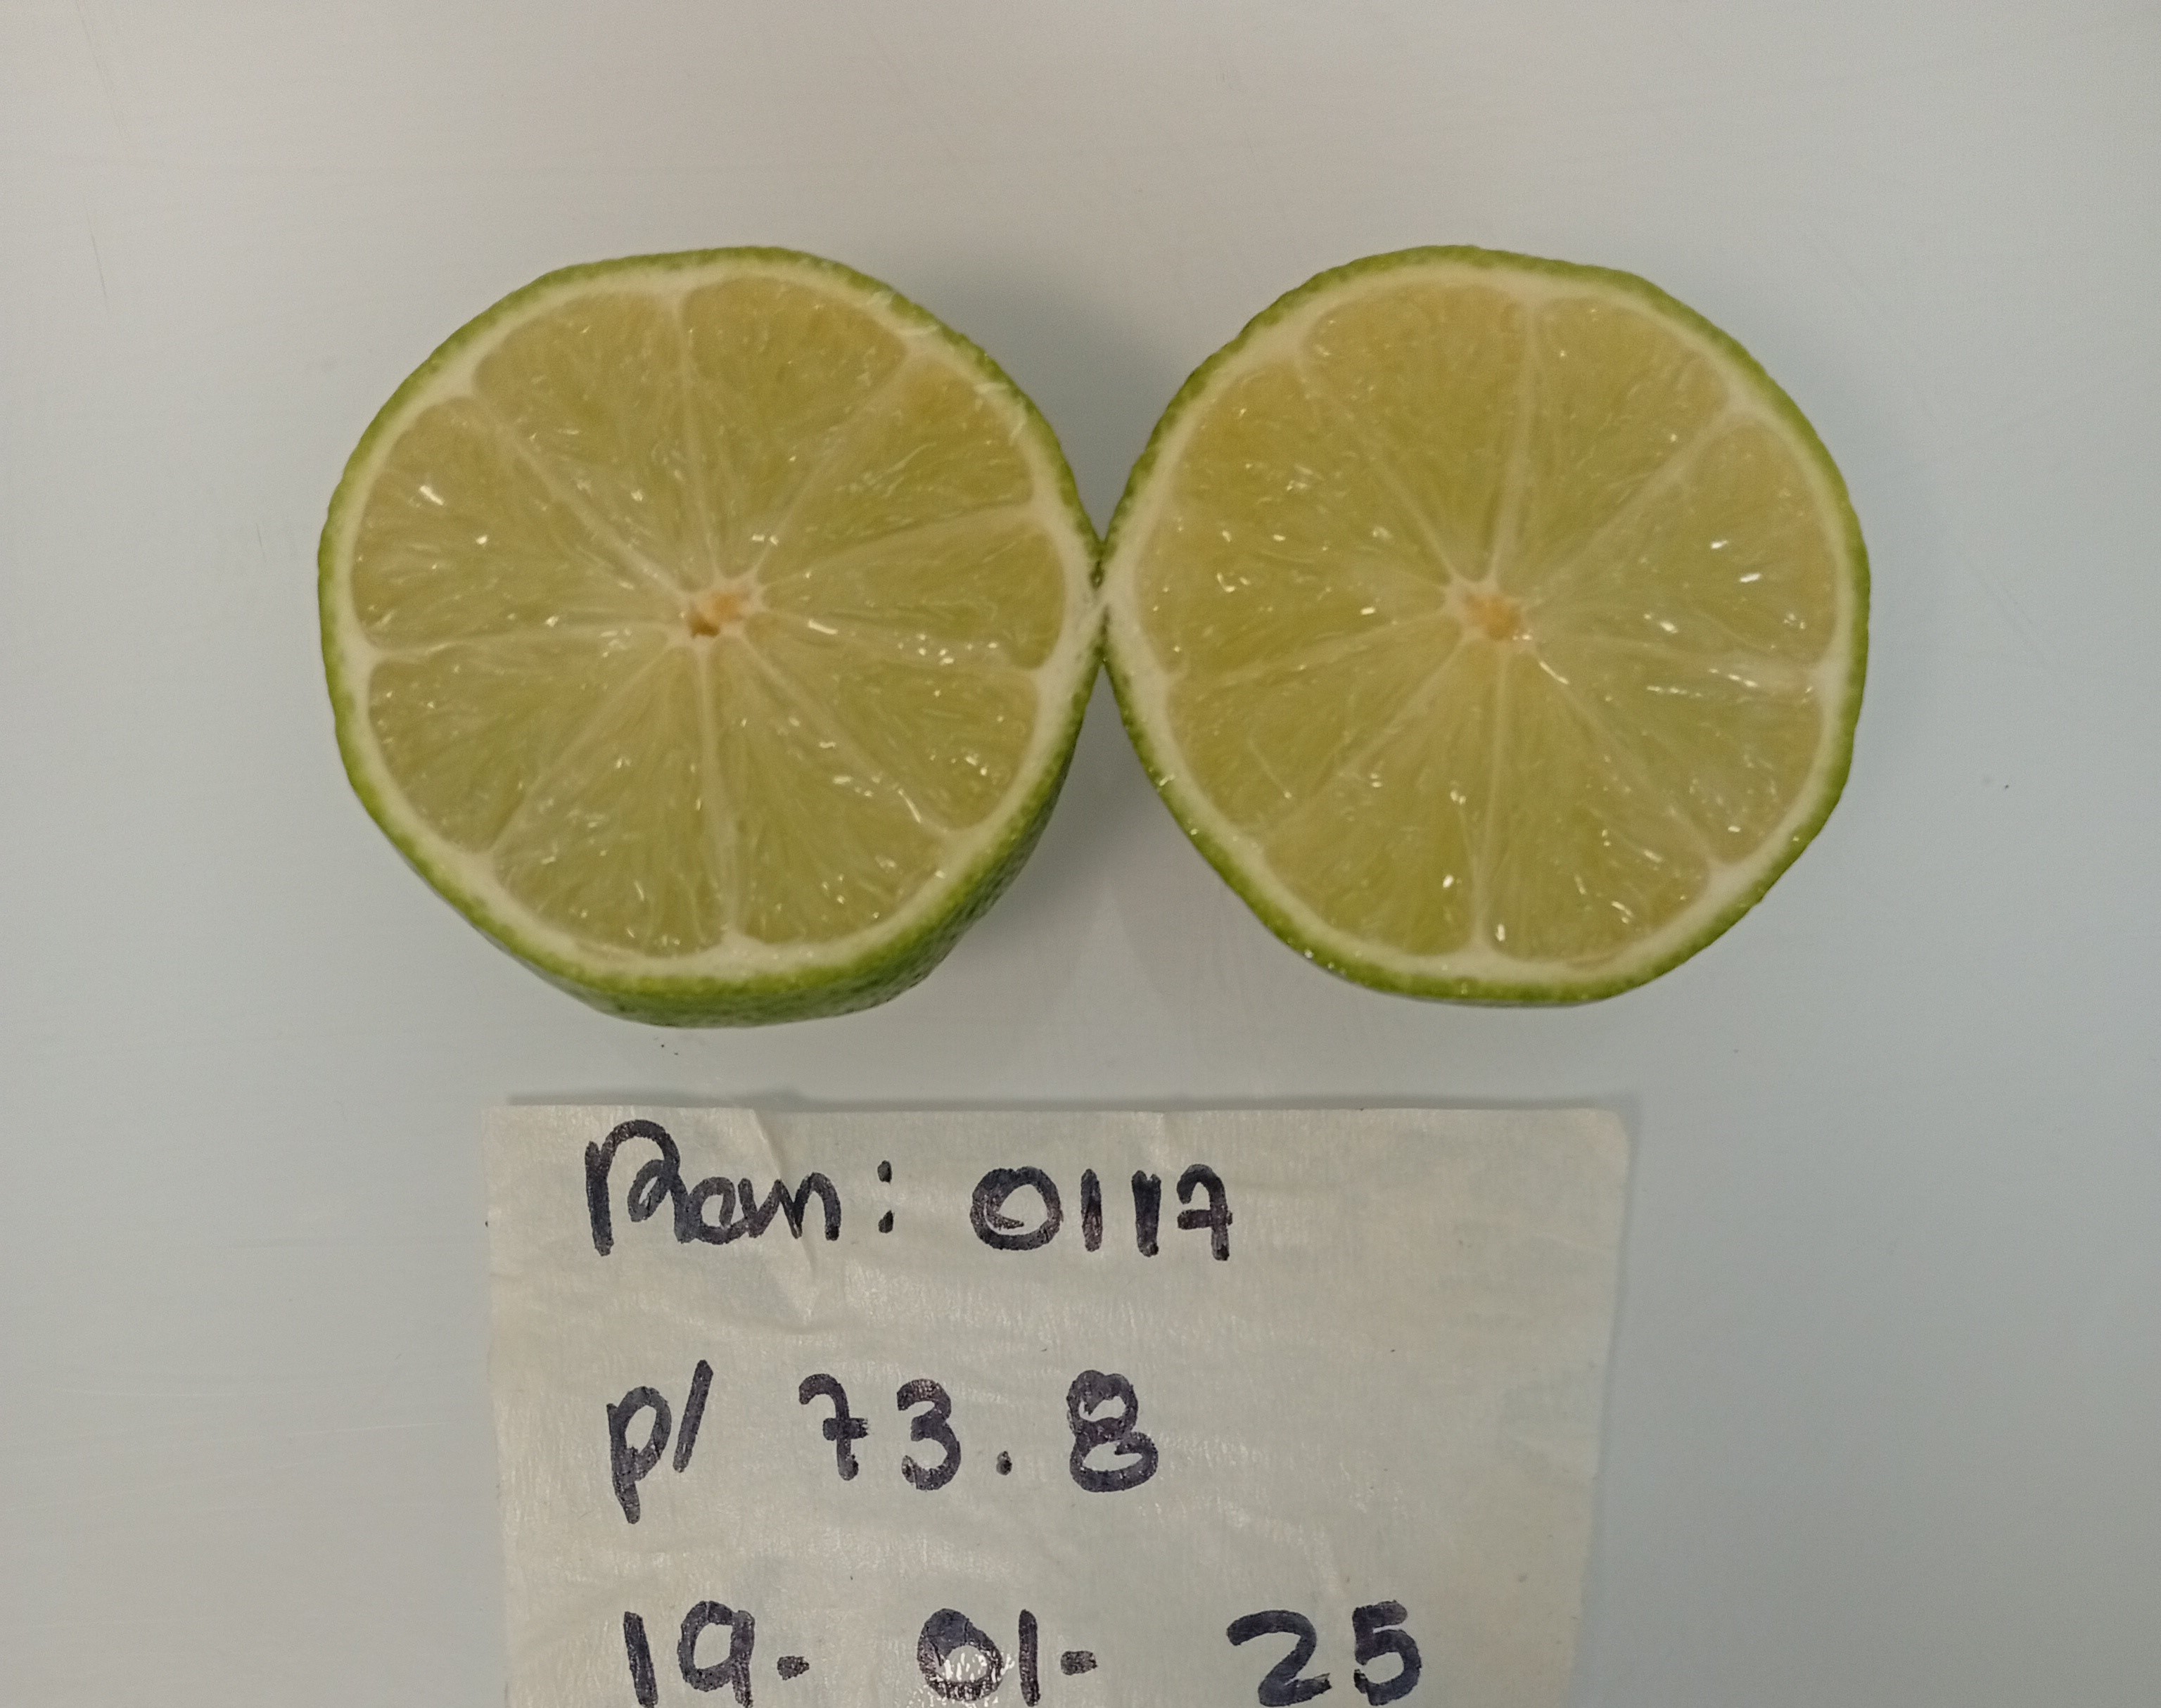 Ram: 0117
p/ 73.8
19-01-25